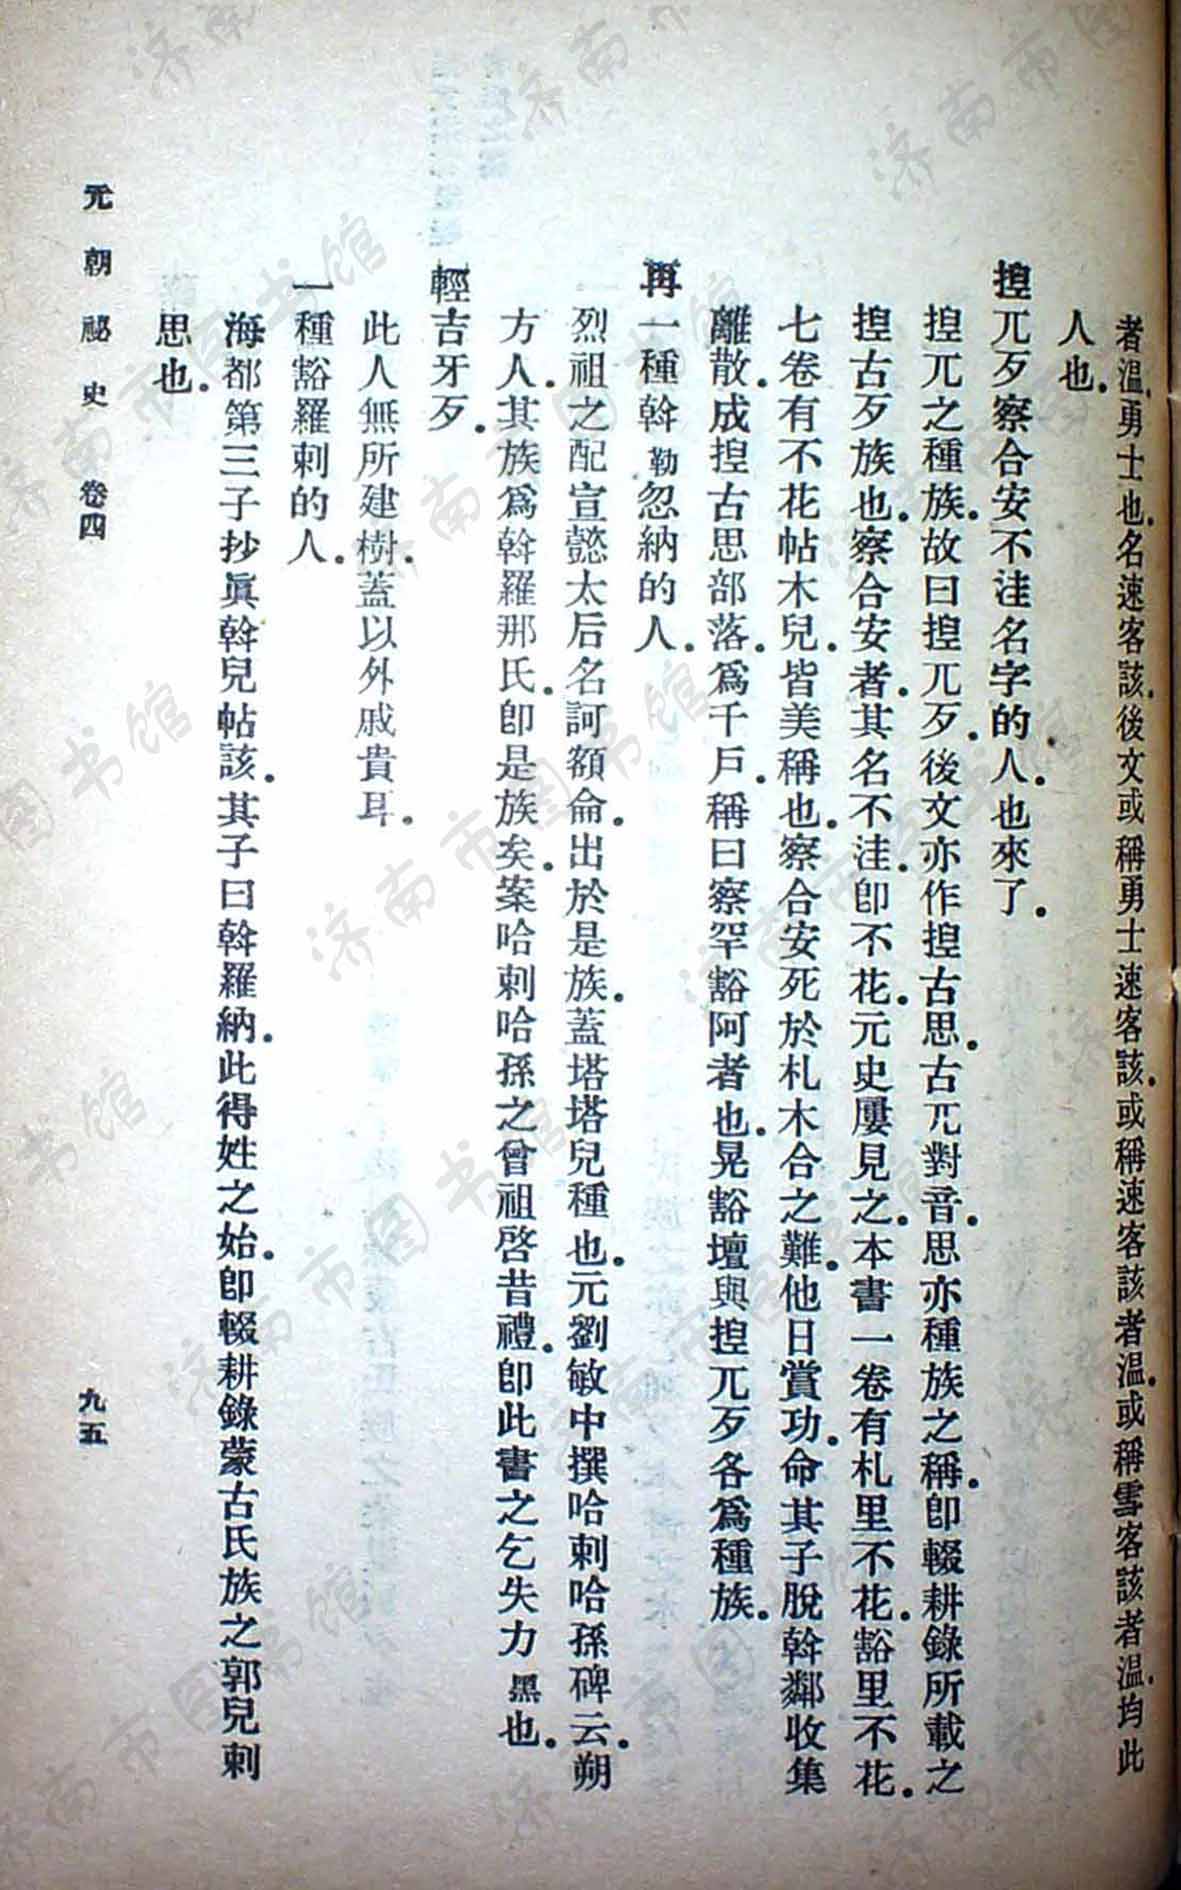 者溫勇士也名速客該後文或稱勇士速客該或稱速客該者溫或稱雪客該者溫均此
人也
揑兀歹察合安不洼名字的人也來了
揑兀之種族故曰揑兀歹後文亦作揑古思古兀對音思亦種族之稱卽輟耕錄所載之
揑古歹族也察合安者其名不洼卽不花元史屢見之本書一卷有札里不花豁里不花
七卷有不花帖木兒皆美稱也察合安死於札木合之難他日賞功命其子脫斡鄰收集
離散成揑古思部落爲千戶稱曰察罕豁阿者也晃豁壇與揑兀歹各爲種族
再一種斡勒忽納的人
烈祖之配宣懿太后名訶額侖出於是族蓋塔塔兒種也元劉敏中撰哈剌哈孫碑云朔
方人其族爲斡羅那氏卽是族矣案哈剌哈孫之曾祖啓昔禮卽此書之乞失力黑也
輕吉牙歹
此人無所建樹蓋以外戚貴耳
一種豁羅剌的人
海都第三子抄眞斡兒帖該其子曰斡羅納此得姓之始卽輟耕錄蒙古氏族之郭兒剌
思也
元朝祕史 卷四
九五
济南市图书馆